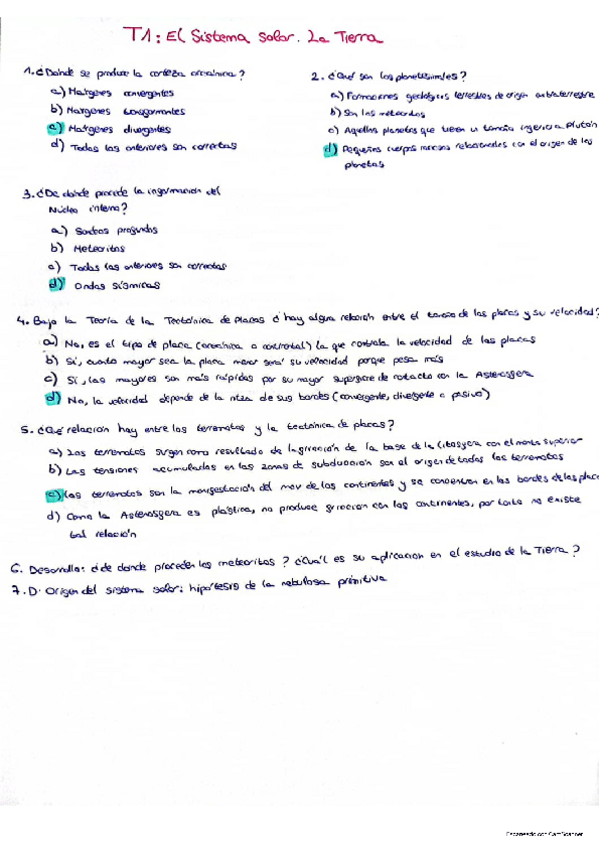 T1: El Sistema Solar. La Tierra
1. ¿Dónde se produce la corteza oceánica?
a) Márgenes convergentes
b) Márgenes transformantes
c) Márgenes divergentes
d) Todas las anteriores son correctas
2. ¿Qué son los planetesimales?
a) Formaciones geológicas terrestres de origen extraterrestre
b) Son los meteoritos
c) Aquellos planetas que tienen un tamaño inferior a Plutón
d) Pequeños cuerpos rocosos relacionados con el origen de los
planetas
3. ¿De dónde procede la información del
Núcleo interno?
a) Sondeos profundos
b) Meteoritos
c) Todas las anteriores son correctas
d) Ondas sísmicas
4. Bajo la Teoría de la Tectónica de placas ¿hay alguna relación entre el tamaño de las placas y su velocidad?
a) No, es el tipo de placa (oceánica o continental) la que controla la velocidad de las placas
b) Sí, cuanto mayor sea la placa menor será su velocidad porque pesa más
c) Sí, las mayores son más rápidas por su mayor superficie de contacto con la Astenosfera
d) No, la velocidad depende de la ntza de sus bordes (convergente, divergente o pasivo)
5. ¿Qué relación hay entre los terremotos y la tectónica de placas?
a) Los terremotos surgen como resultado de la fricción de la base de la litosfera con el manto superior
b) Las tensiones acumuladas en las zonas de subducción son el origen de todos los terremotos
c) Los terremotos son la manifestación del mov de los continentes y se concentran en los bordes de las placas
d) Como la Astenosfera es plástica, no produce fricción con los continentes, por tanto no existe
tal relación
6. Desarrollo: ¿de donde proceden los meteoritos? ¿Cuál es su aplicación en el estudio de la Tierra?
7. D. Origen del sistema solar: hipótesis de la nebulosa primitiva
Escaneado con CamScanner